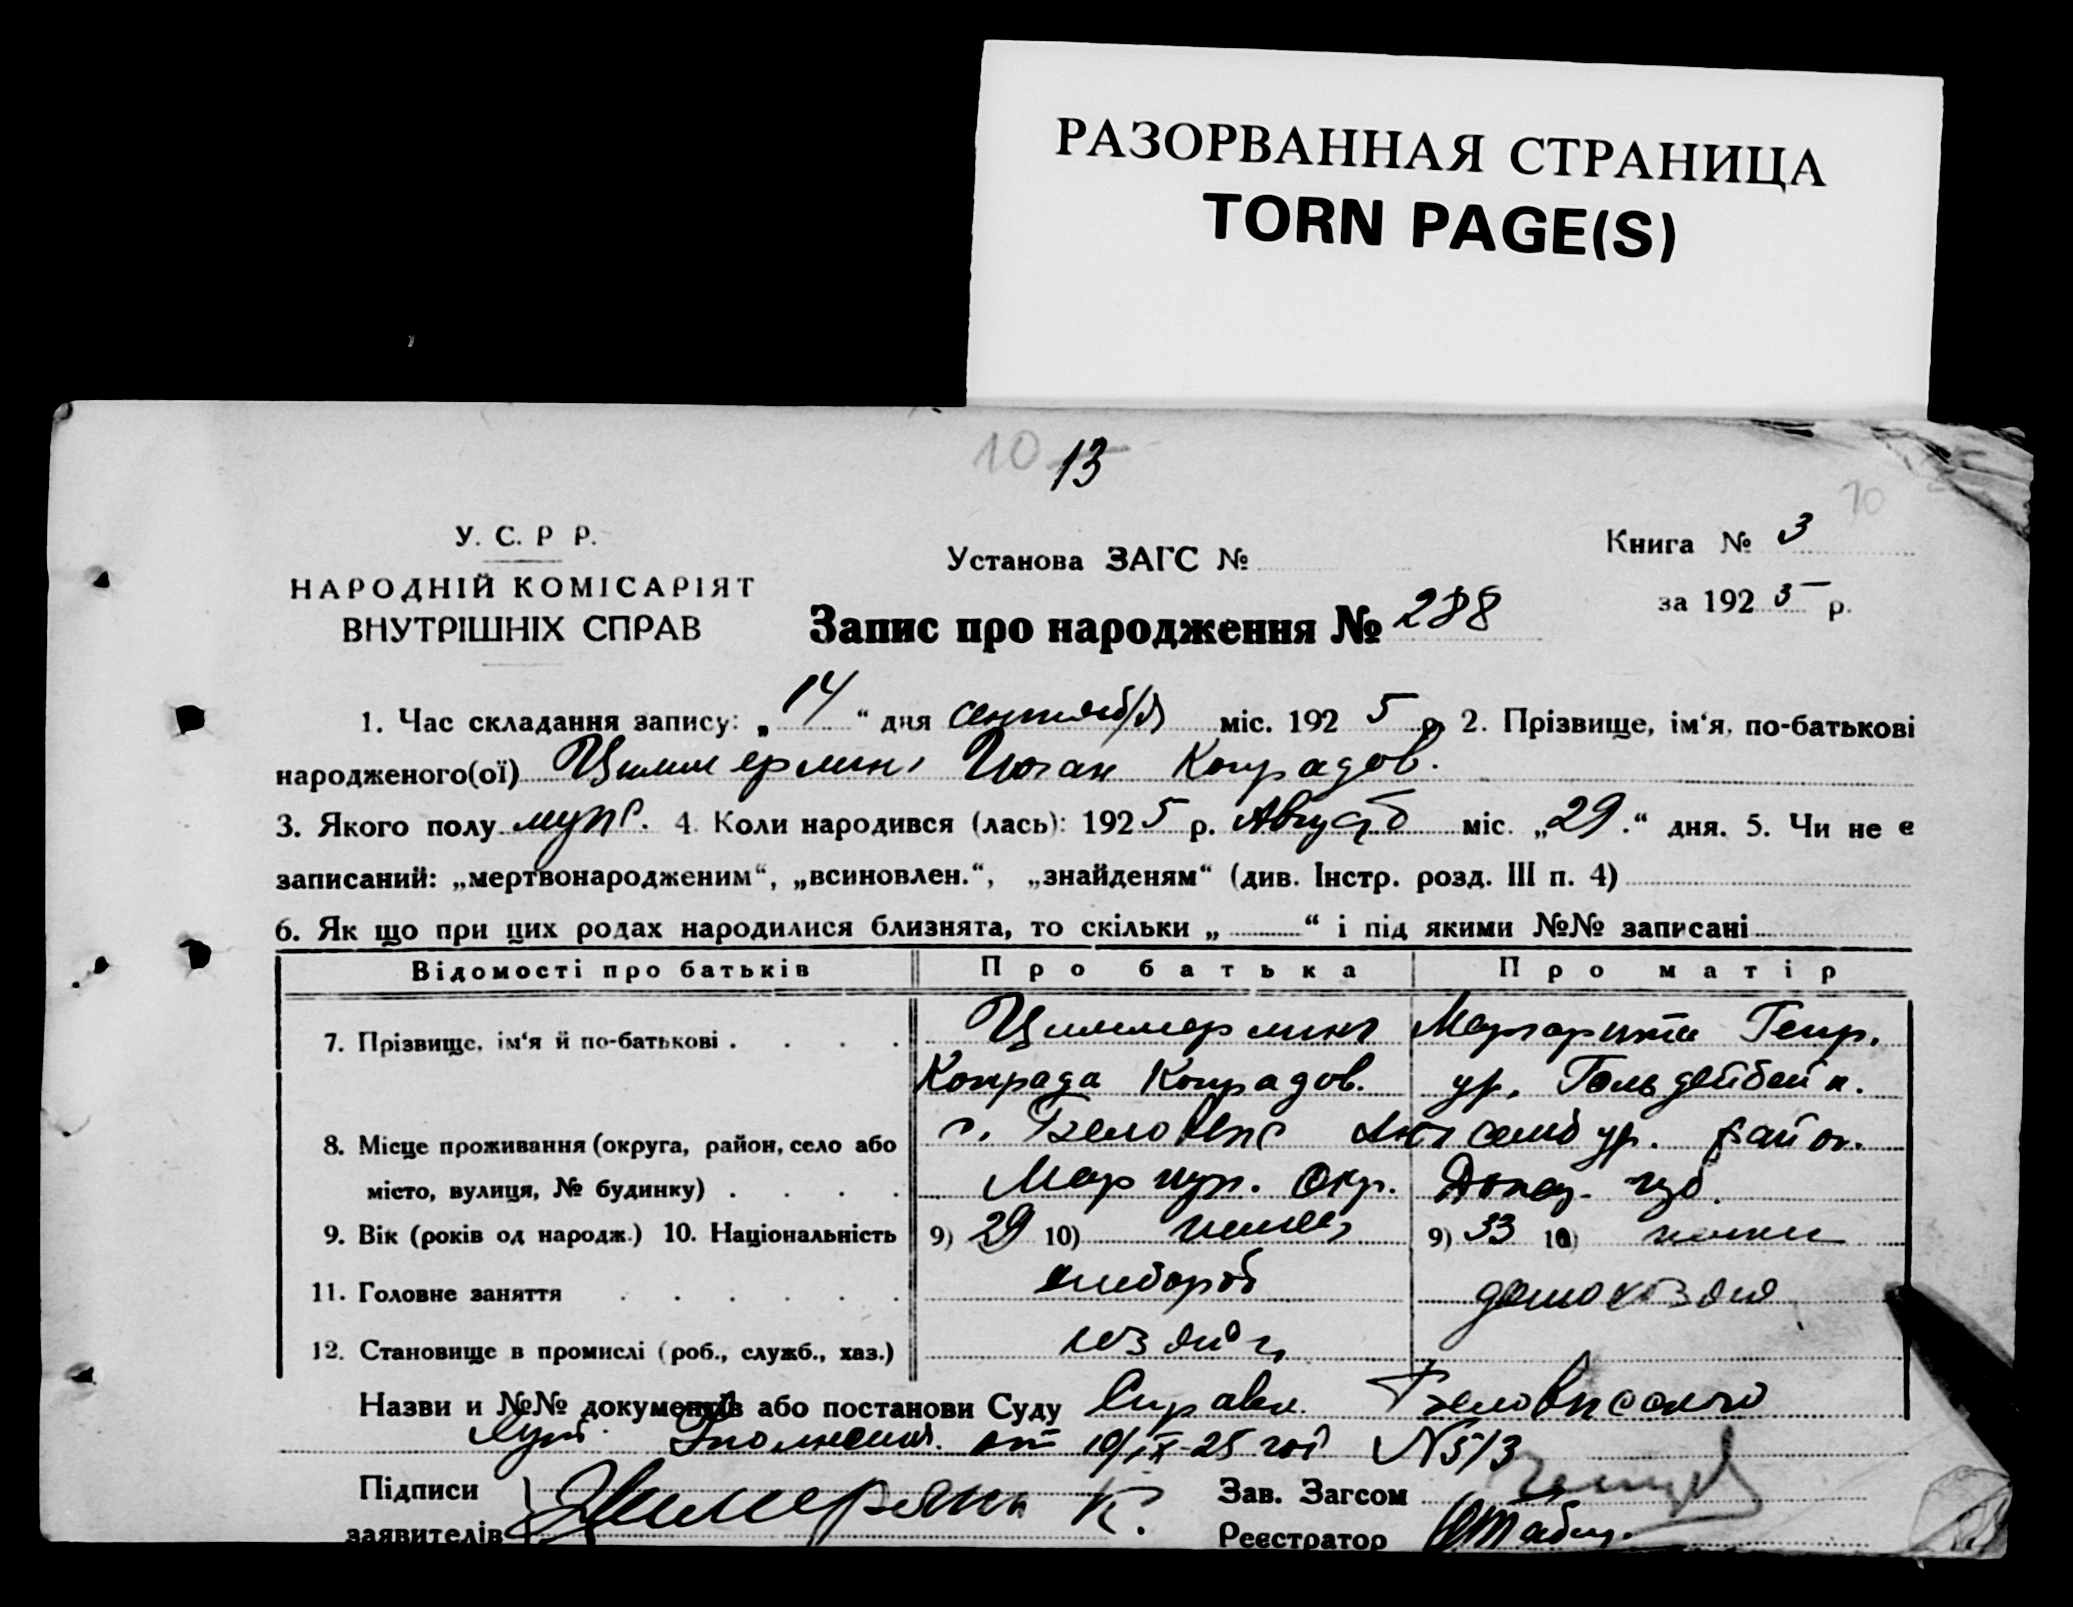 РАЗОРВАННАЯ СТРАНИЦА
TORN PAGE(S)
10 13
10
У. С. Р Р.
НАРОДНІЙ КОМІСАРІЯТ
ВНУТРІШНІХ СПРАВ
Установа ЗАГС №
Книга № 3
за 1925 р.
Запис про народження № 288
1. Час складання запису: „14“ дня сентября міс. 1925 р. 2. Прізвище, ім‘я, по-батькові
народженого(ої) Циммерман Иоган Конрадов.
3. Якого полу муж. 4. Коли народився (лась): 1925 р. Август міс. „29.“ дня. 5. Чи не є
записаний: „мертвонародженим“, „всиновлен.“, „знайденям“ (див. Інстр. розд. III п. 4)
6. Як що при цих родах народилися близнята, то скільки „ “ і під якими №№ записані
Відомості про батьків Про батька Про матір
7. Прізвище, ім‘я й по-батькові Циммерман Маргарита Генр.
Конрада Конрадов. ур. Гольдейбейн.
8. Місце проживання (округа, район, село або с. Беловеж Люксембур. район.
місто, вулиця, № будинку) Мариуп. Окр. Донец. губ.
9. Вік (років од народж.) 10. Національність 9) 29 10) немец 9) 33 10) немка
11. Головне заняття хлебороб домохозяй
12. Становище в промислі (роб., служб., хаз.) хозяин
Назви и №№ документів або постанови Суду Справка Беловежского
от 10/IX-25 год №513
Підписи
заявителів Циммерман К.
Зав. Загсом
Реєстратор